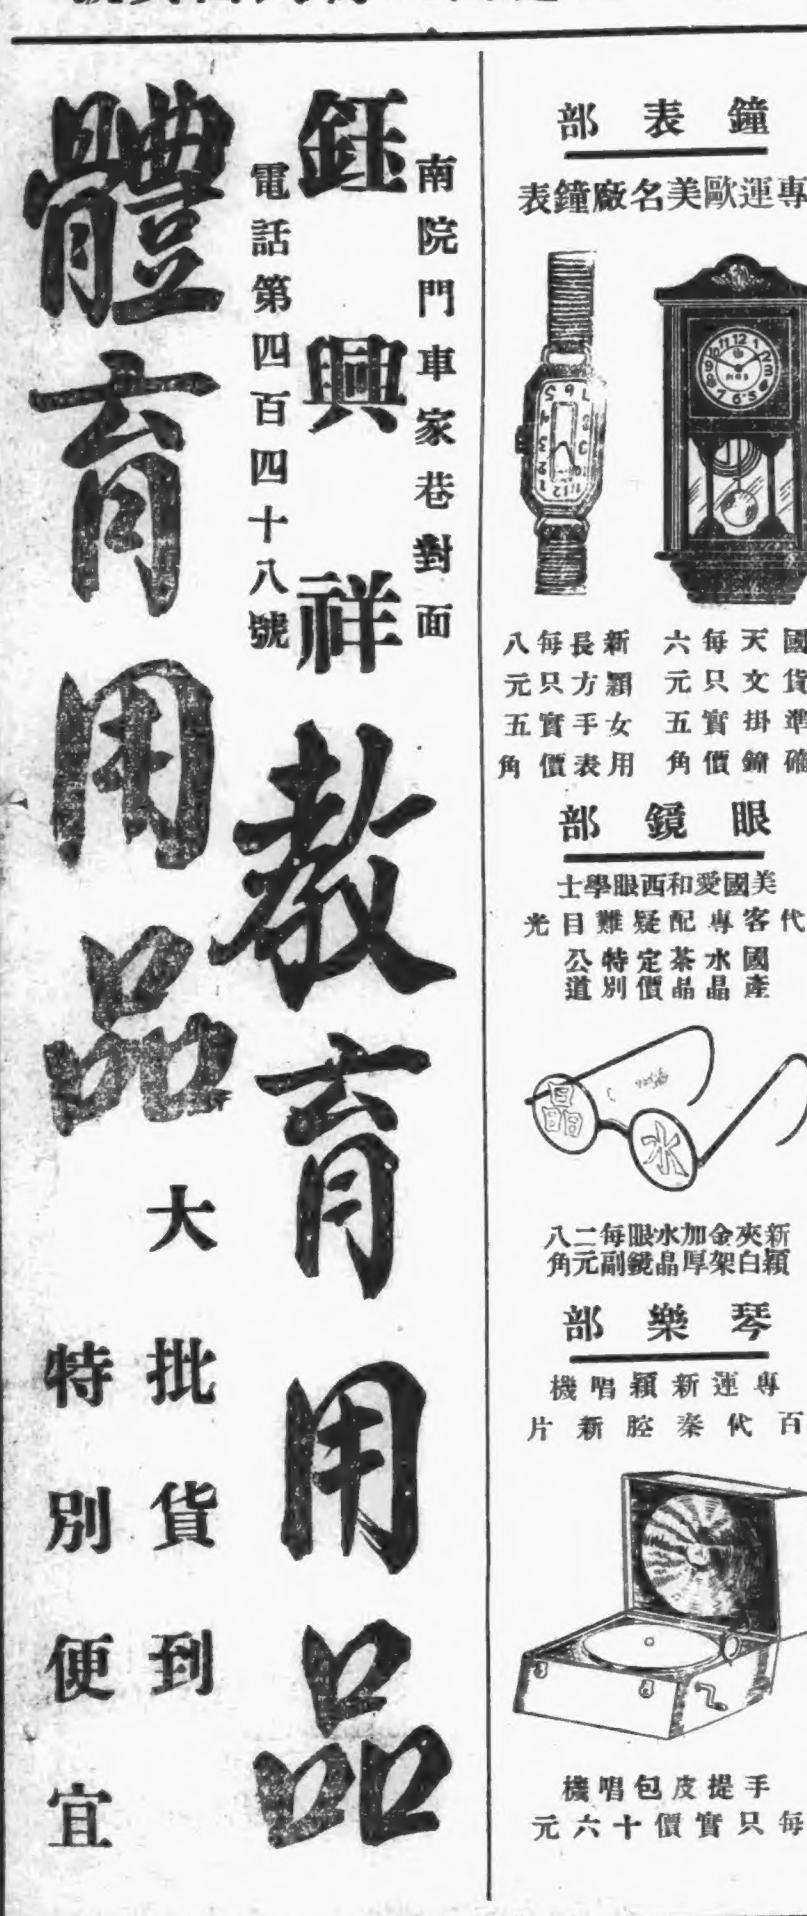 鐘表部
專運歐美名廠鐘表
國貨準確
天文掛鐘
每只實價
六元五角
新穎女用
長方手表
每只實價
八元五角
眼鏡部
美國愛和西眼學士
代客專配疑難目光
國產
水晶
茶晶
定價
特別
公道
水晶
新穎
夾白
金架
加厚
水晶
眼鏡
每副
二元
八角
琴樂部
專運新穎唱機
百代秦腔新片
手提皮包唱機
每只實價十六元
南院門車家巷對面
鈺興祥
電話第四百四十八號
教育用品
體育用品
大批貨到
特別便宜